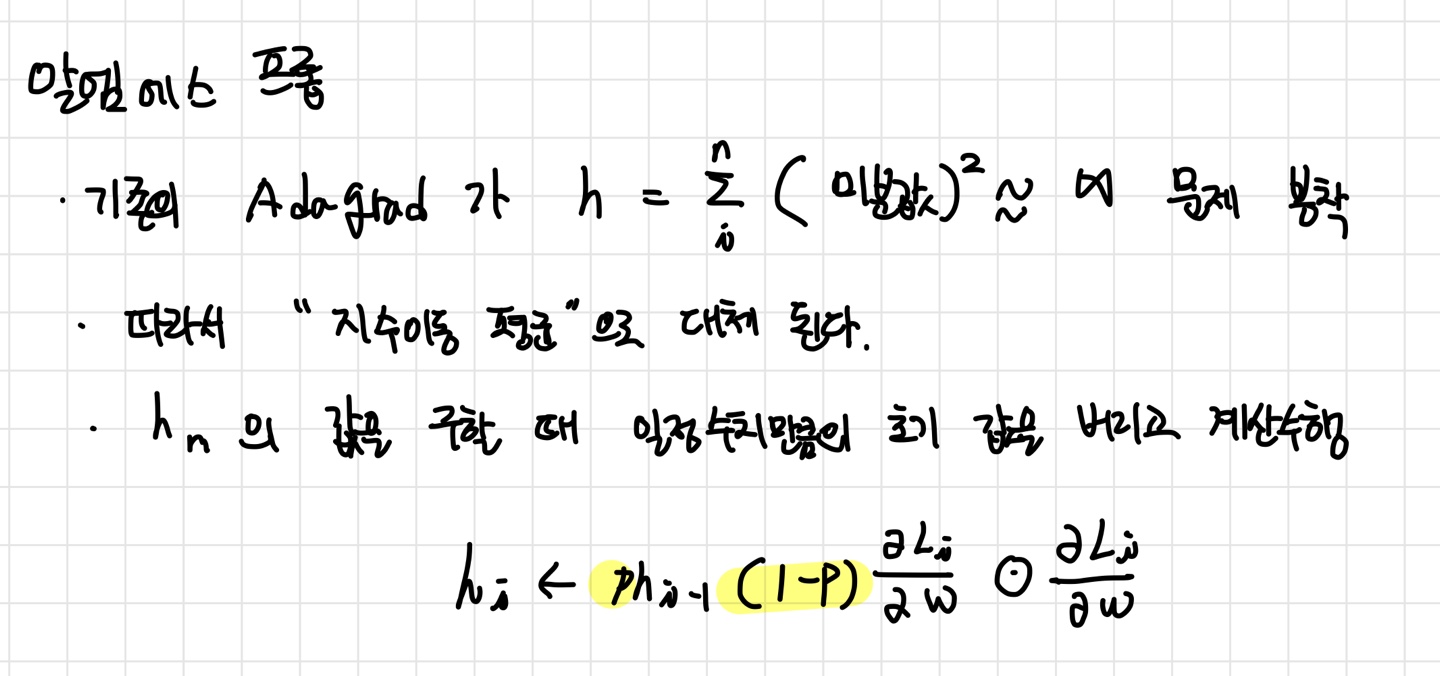 알엠에스 프롭
· 기존의 Adagrad 가 h = Σ_i^n (미분값)² ≈ ∞ 문제 봉착
· 따라서 "지수이동 평균"으로 대체 된다.
· hₙ의 값을 구할 때 일정수치만큼의 초기 값을 버리고 계산수행
h_i ← ph_{i-1} (1-p) ∂L_i/∂w ⊙ ∂L_i/∂w